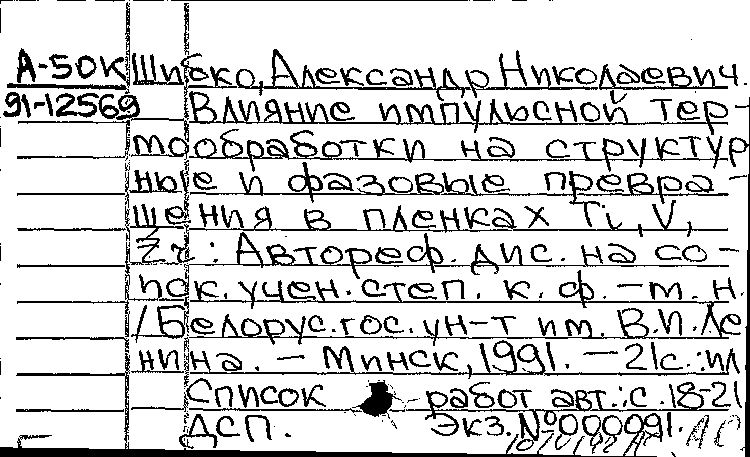 А-50К Шибко, Александр Николаевич.
91-12569 Влияние импульсной тер-
мообработки на структур
ные и фазовые превра-
щения в пленках Ti, V,
Zr: Автореф. дис. на со-
иск. учен. степ. к. ф.-м. н.
/Белорус. гос. ун-т им. В.И. Ле
нина. - Минск, 1991. - 21с.:ил
Список работ авт.: с. 18-21
ДСП. Экз. №000091.
АС